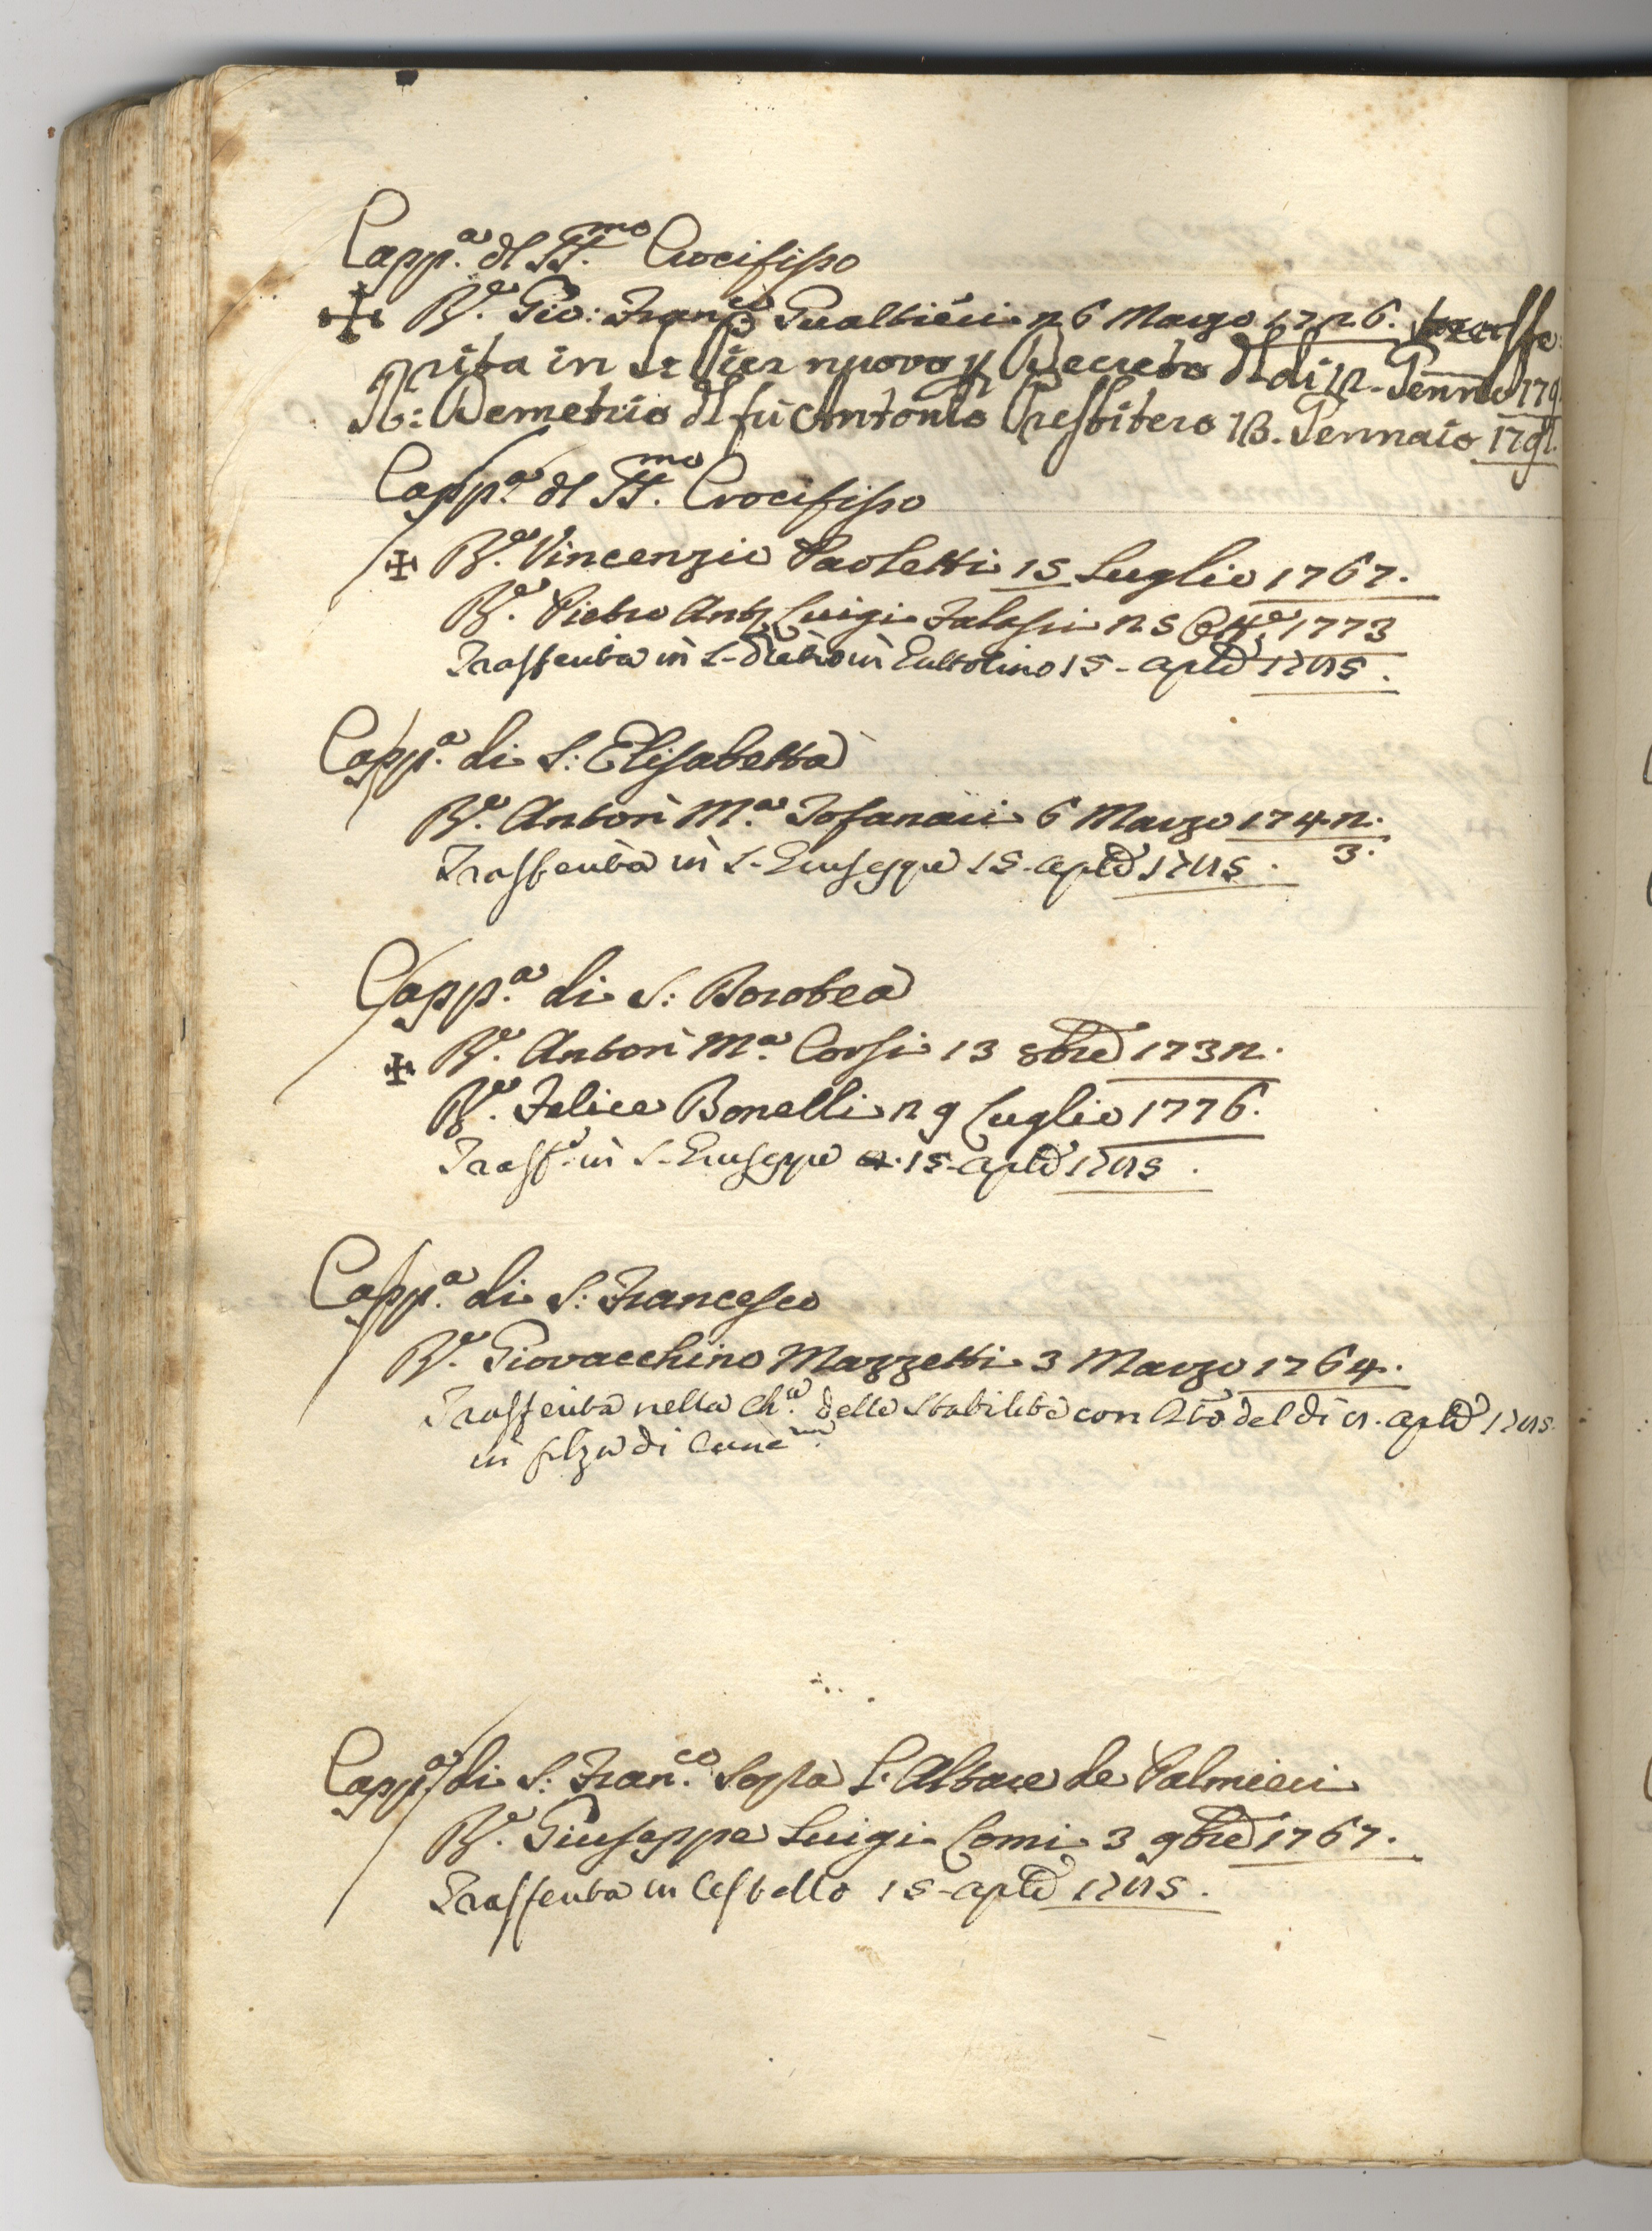 Capp.a dl SS.mo Crocifisso
R.e Gio: Fran.co Gualtieri 26 Marzo 1726. trasfe=
rita in S. Pier nuovo p Decreto dl di 12. Genn.o 179
R: Demetrio dl fù Antonio Presbitero 13. Gennaio 1791.
Capp.a dl SS.mo Crocifisso
R.e Vincenzio Paoletti 15 Luglio 1767.
R.e Pietro Ant.o Luigi 25 1773
Trasferita in S. Pietro in 15 aple 1785.
Capp.a di S: Elisabetta
R.e Anton M.a Tofanari 6 Marzo 1742.
3.
Trasferita in S. Giuseppe 15. aple 1785.
Capp.a di S: Dorotea
R.e Anton M.a Corsi 13 8bre 1732.
R.e Felice Bonelli 29 Luglio 1776.
Trasf. in S. Giuseppe 15. aple 1785.
Capp.a di S: Francesco
R.e Giovacchino Mazzetti 3 Marzo 1764.
Trasferita nella Ch.a delle Stabilite con del di aple 1785.
in filza di
Capp.a di S: Fran.co sopra l'Altare de Palmieri
R.e Giuseppe Luigi Comi 3 9bre 1767.
Trasferita in Cestello 15 aple 1785.